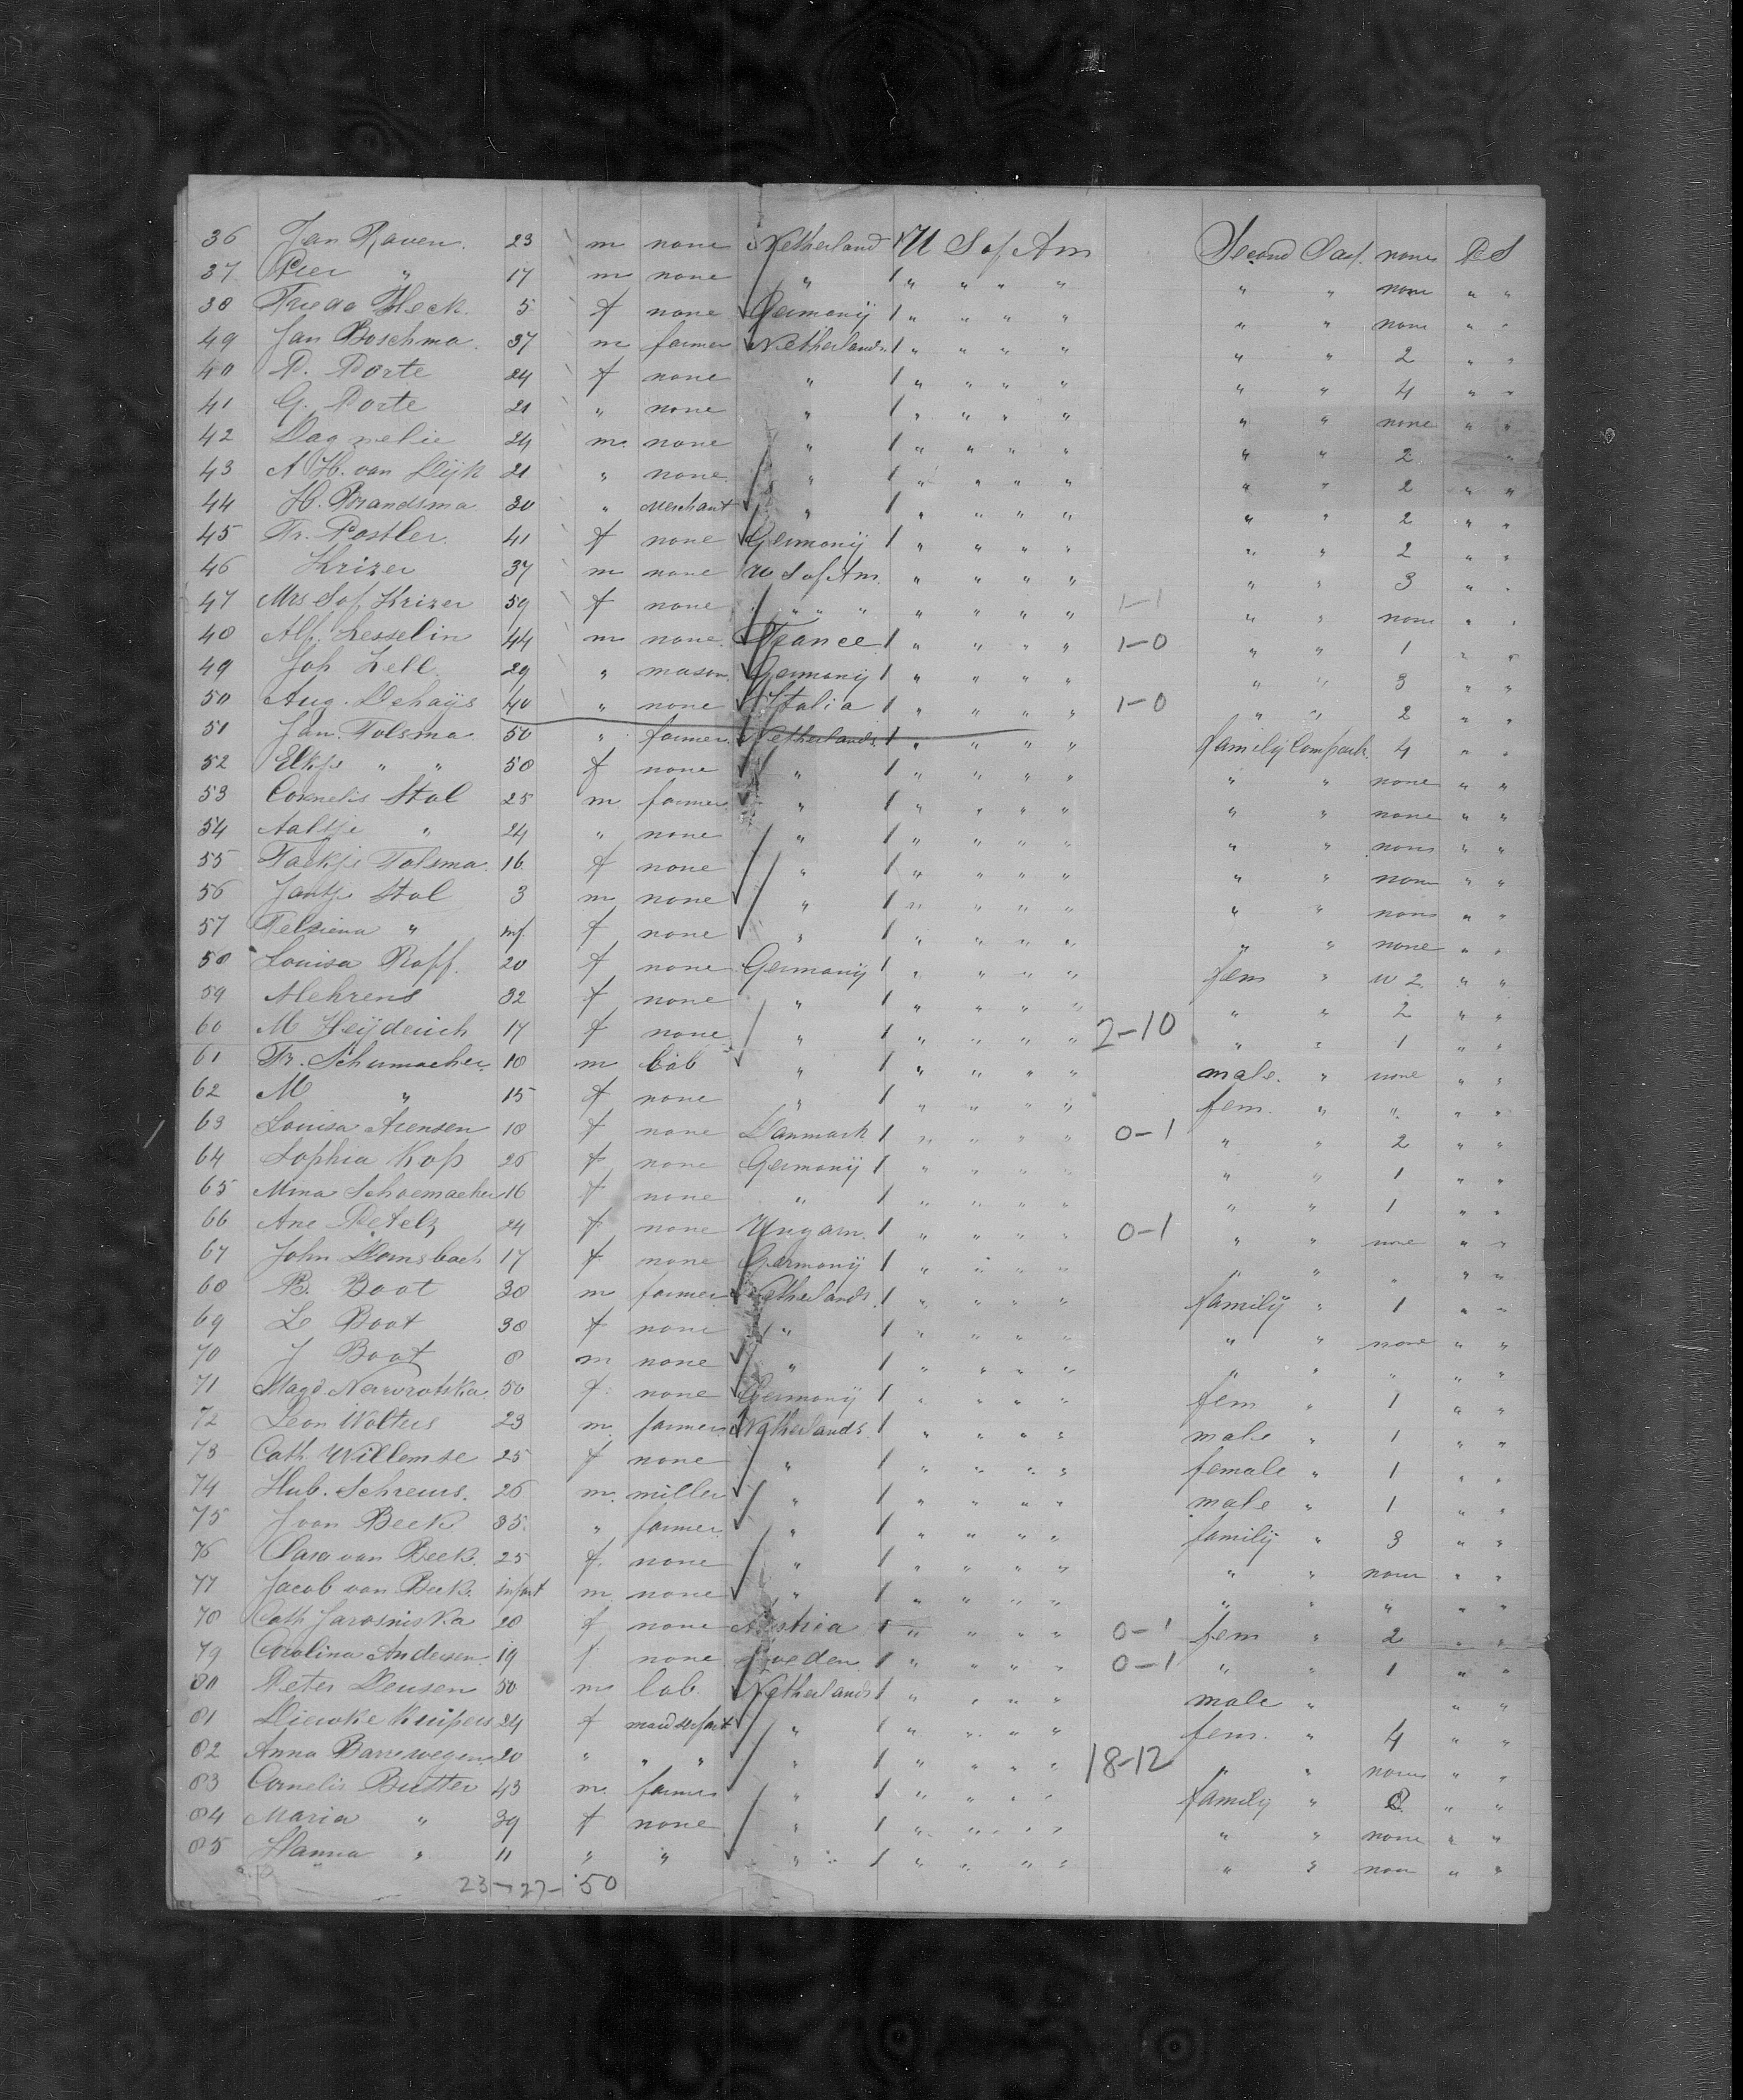 36 Jan Raven. 23 m none Netherland U S of Am Second Sal. none D S
37 Pier " 17 m none " " " " " " " none " "
38 5 f none Germany " " " " " " none " "
49 Jan Boschma. 37 m farmer Netherlands " " " " " " 2 " "
40 P. Porte 24 f none " " " " " " " 4 " "
41 G. Porte 21 " none " " " " " " " none " "
42 24 m. none " " " " " " " 2 "
43 A H. van Dijk 21 " none " " " " " " " 2 " "
44 H. Brandsma 30 " Merchant " " " " " " " 2 " "
45 Fr. Postler. 41 f none Germany " " " " " " 2 " "
46 Krizer 37 m none U S of Am. " " " " " " 3 " "
47 Mrs Sof Krizer 59 f none " " " " " " " " 1-1 " " none " "
48 Alf. Lesselin 44 m none France " " " " 1-0 " " 1 " "
49 Joh. Zell 29 " mason Germany " " " " " " 3 " "
50 Aug. Dehays 40 " none Italia " " " " 1-0 " " 2 " "
51 Jan Tolsma 50 " farmer. Netherlands " " " " family Compart. 4 " "
52 Elkje " " 50 f none " " " " " " " none " "
53 Cornelis Stol 25 m. farmer " " " " " " " none " "
54 Aaltje " 24 " none " " " " " " " none " "
55 Tolsma. 16 f none " " " " " " " none " "
56 Jantje Stol 3 m none " " " " " " " none " "
57 " inf. f none " " " " " " " none " "
58 Louisa Raff. 20 f none Germany " " " " fem " 2 " "
59 Mehrens 32 f none " " " " " " " 2 " "
60 M Heyderich 17 f none " " " " " 2-10 " " 1 " "
61 Fr. Schumacher 18 m lab " " " " " male. " none " "
62 M " 15 f none " " " " " fem. " " " "
63 Louisa Arensen 18 f none Danmark " " " " 0-1 " " 2 " "
64 Sophia Kop 26 f none Germany " " " " " " 1 " "
65 Mina Schoemacher 16 f none " " " " " " " 1 " "
66 Ane 24 f none Ungarn. " " " " 0-1 " " none " "
67 John Dornsbach 17 f none Germany " " " " " " " " "
68 B. Boot 30 m farmer Netherlands " " " " family " 1 " "
69 L Boot 38 f none " " " " " " " none " "
70 J Boot 8 m none " " " " " " " " " "
71 Magd. Nawrotska 50 f. none Germany " " " " fem " 1 " "
72 Leon Wolters 23 m. farmer Netherlands. " " " " male " 1 " "
73 Cath. Willemse 25 f none " " " " " female " 1 " "
74 Hub. Schreurs. 26 m. miller " " " " " male " 1 " "
75 J van Beek 35. " farmer " " " " " family " 3 " "
76 Clara van Beek. 25 f. none " " " " " " " none " "
77 Jacob van Beek. infant m none " " " " " " " " " "
78 Cath. Jarosniska 20 f none Austria " " " " 0-1 fem " 2 " "
79 Carolina Andersen 19 f none Sweden " " " " 0-1 " " 1 " "
80 Peter Deusen 50 m lab. Netherlands " " " " male " " "
81 Diewke Kuipers 24 f maidservant " " " " " fem. " 4 " "
82 Anna Barrewegen 20 " " " " " " " " 18-12 " " none " "
83 Cornelis Butter 43 m. farmer " " " " " family " 8 " "
84 Maria " 39 f none " " " " " " " none " "
85 Hanna " 11 " " " " " " " " " none " "
23-27-50